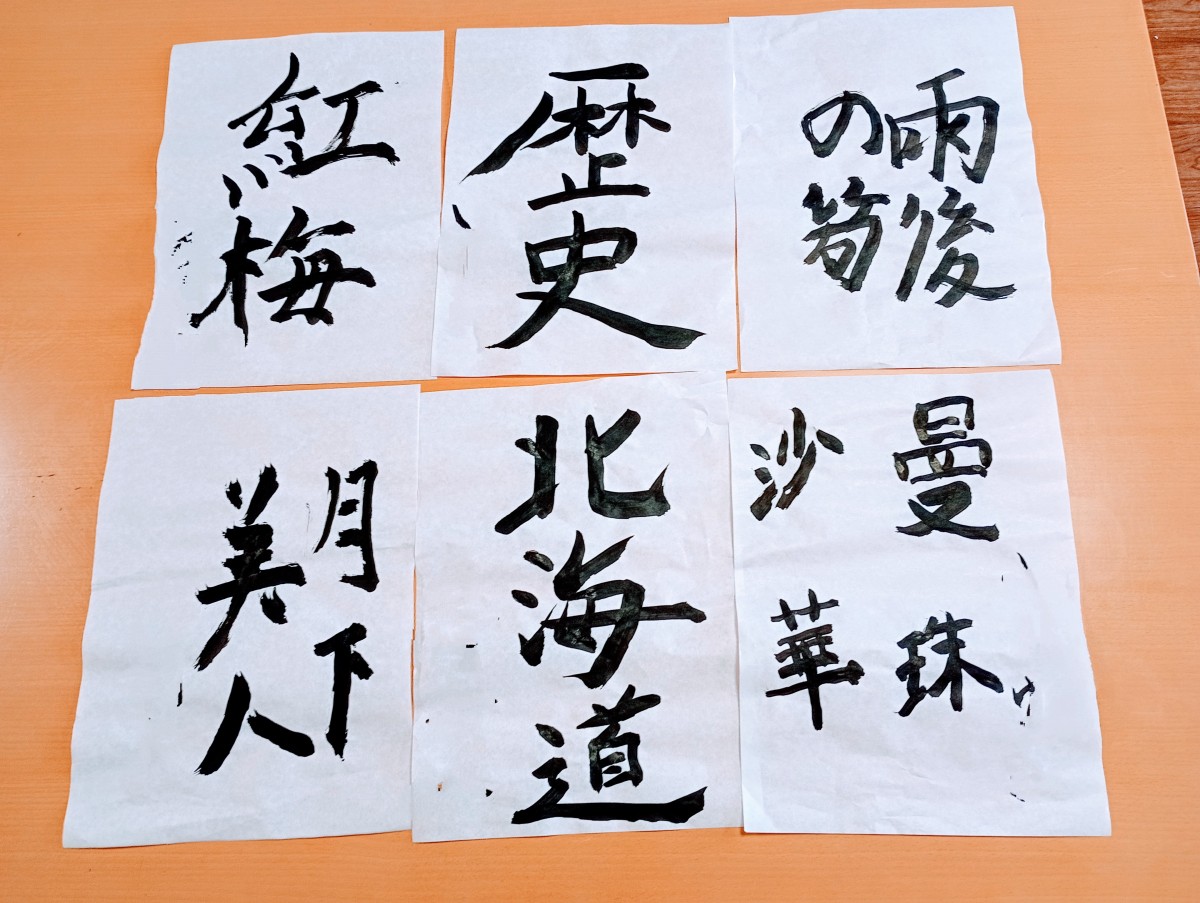 紅梅
歴史
雨後
の筍
月下
美人
北海道
曼珠
沙華